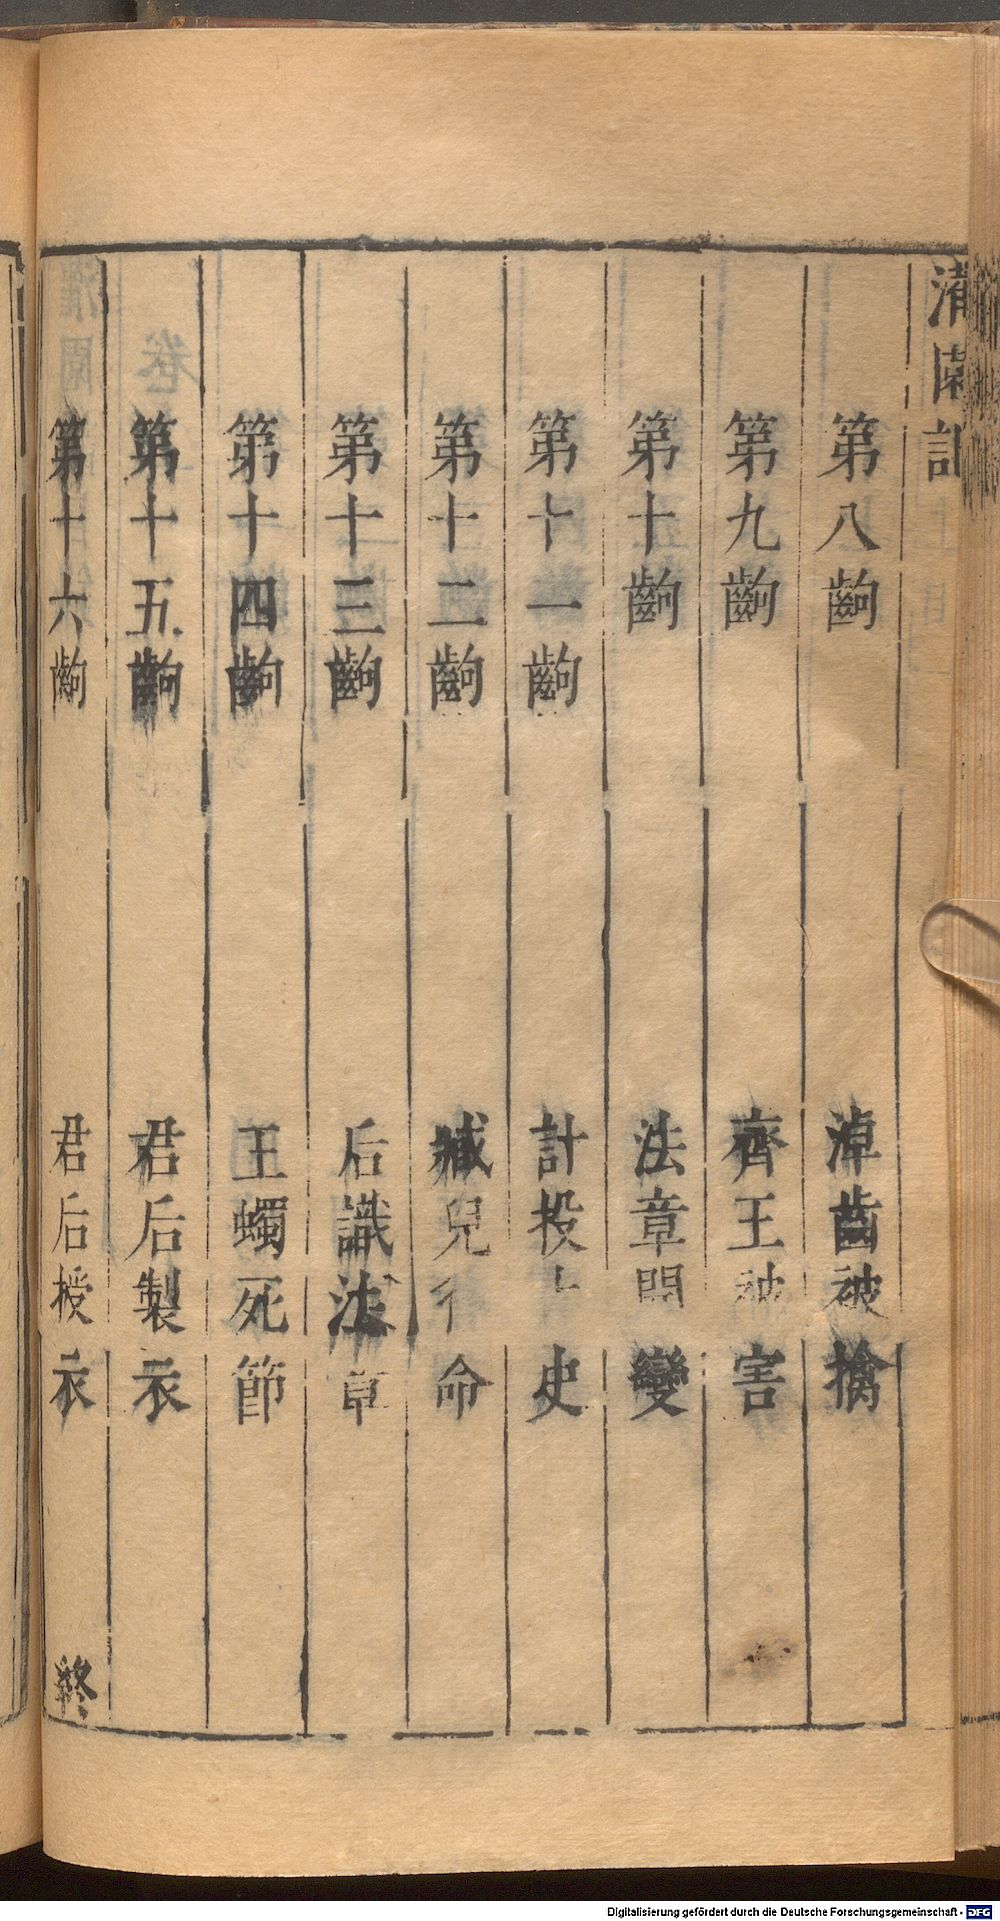 園記
第八齣 淖齒被擒
第九齣 齊王被害
第十齣 法章聞變
第十一齣 計投史
第十二齣 臧兒行命
第十三齣 后識法章
第十四齣 王蠋死節
第十五齣 君后製衣
第十六齣 君后授衣 終
Digitalisierung gefördert durch die Deutsche Forschungsgemeinschaft - DFG